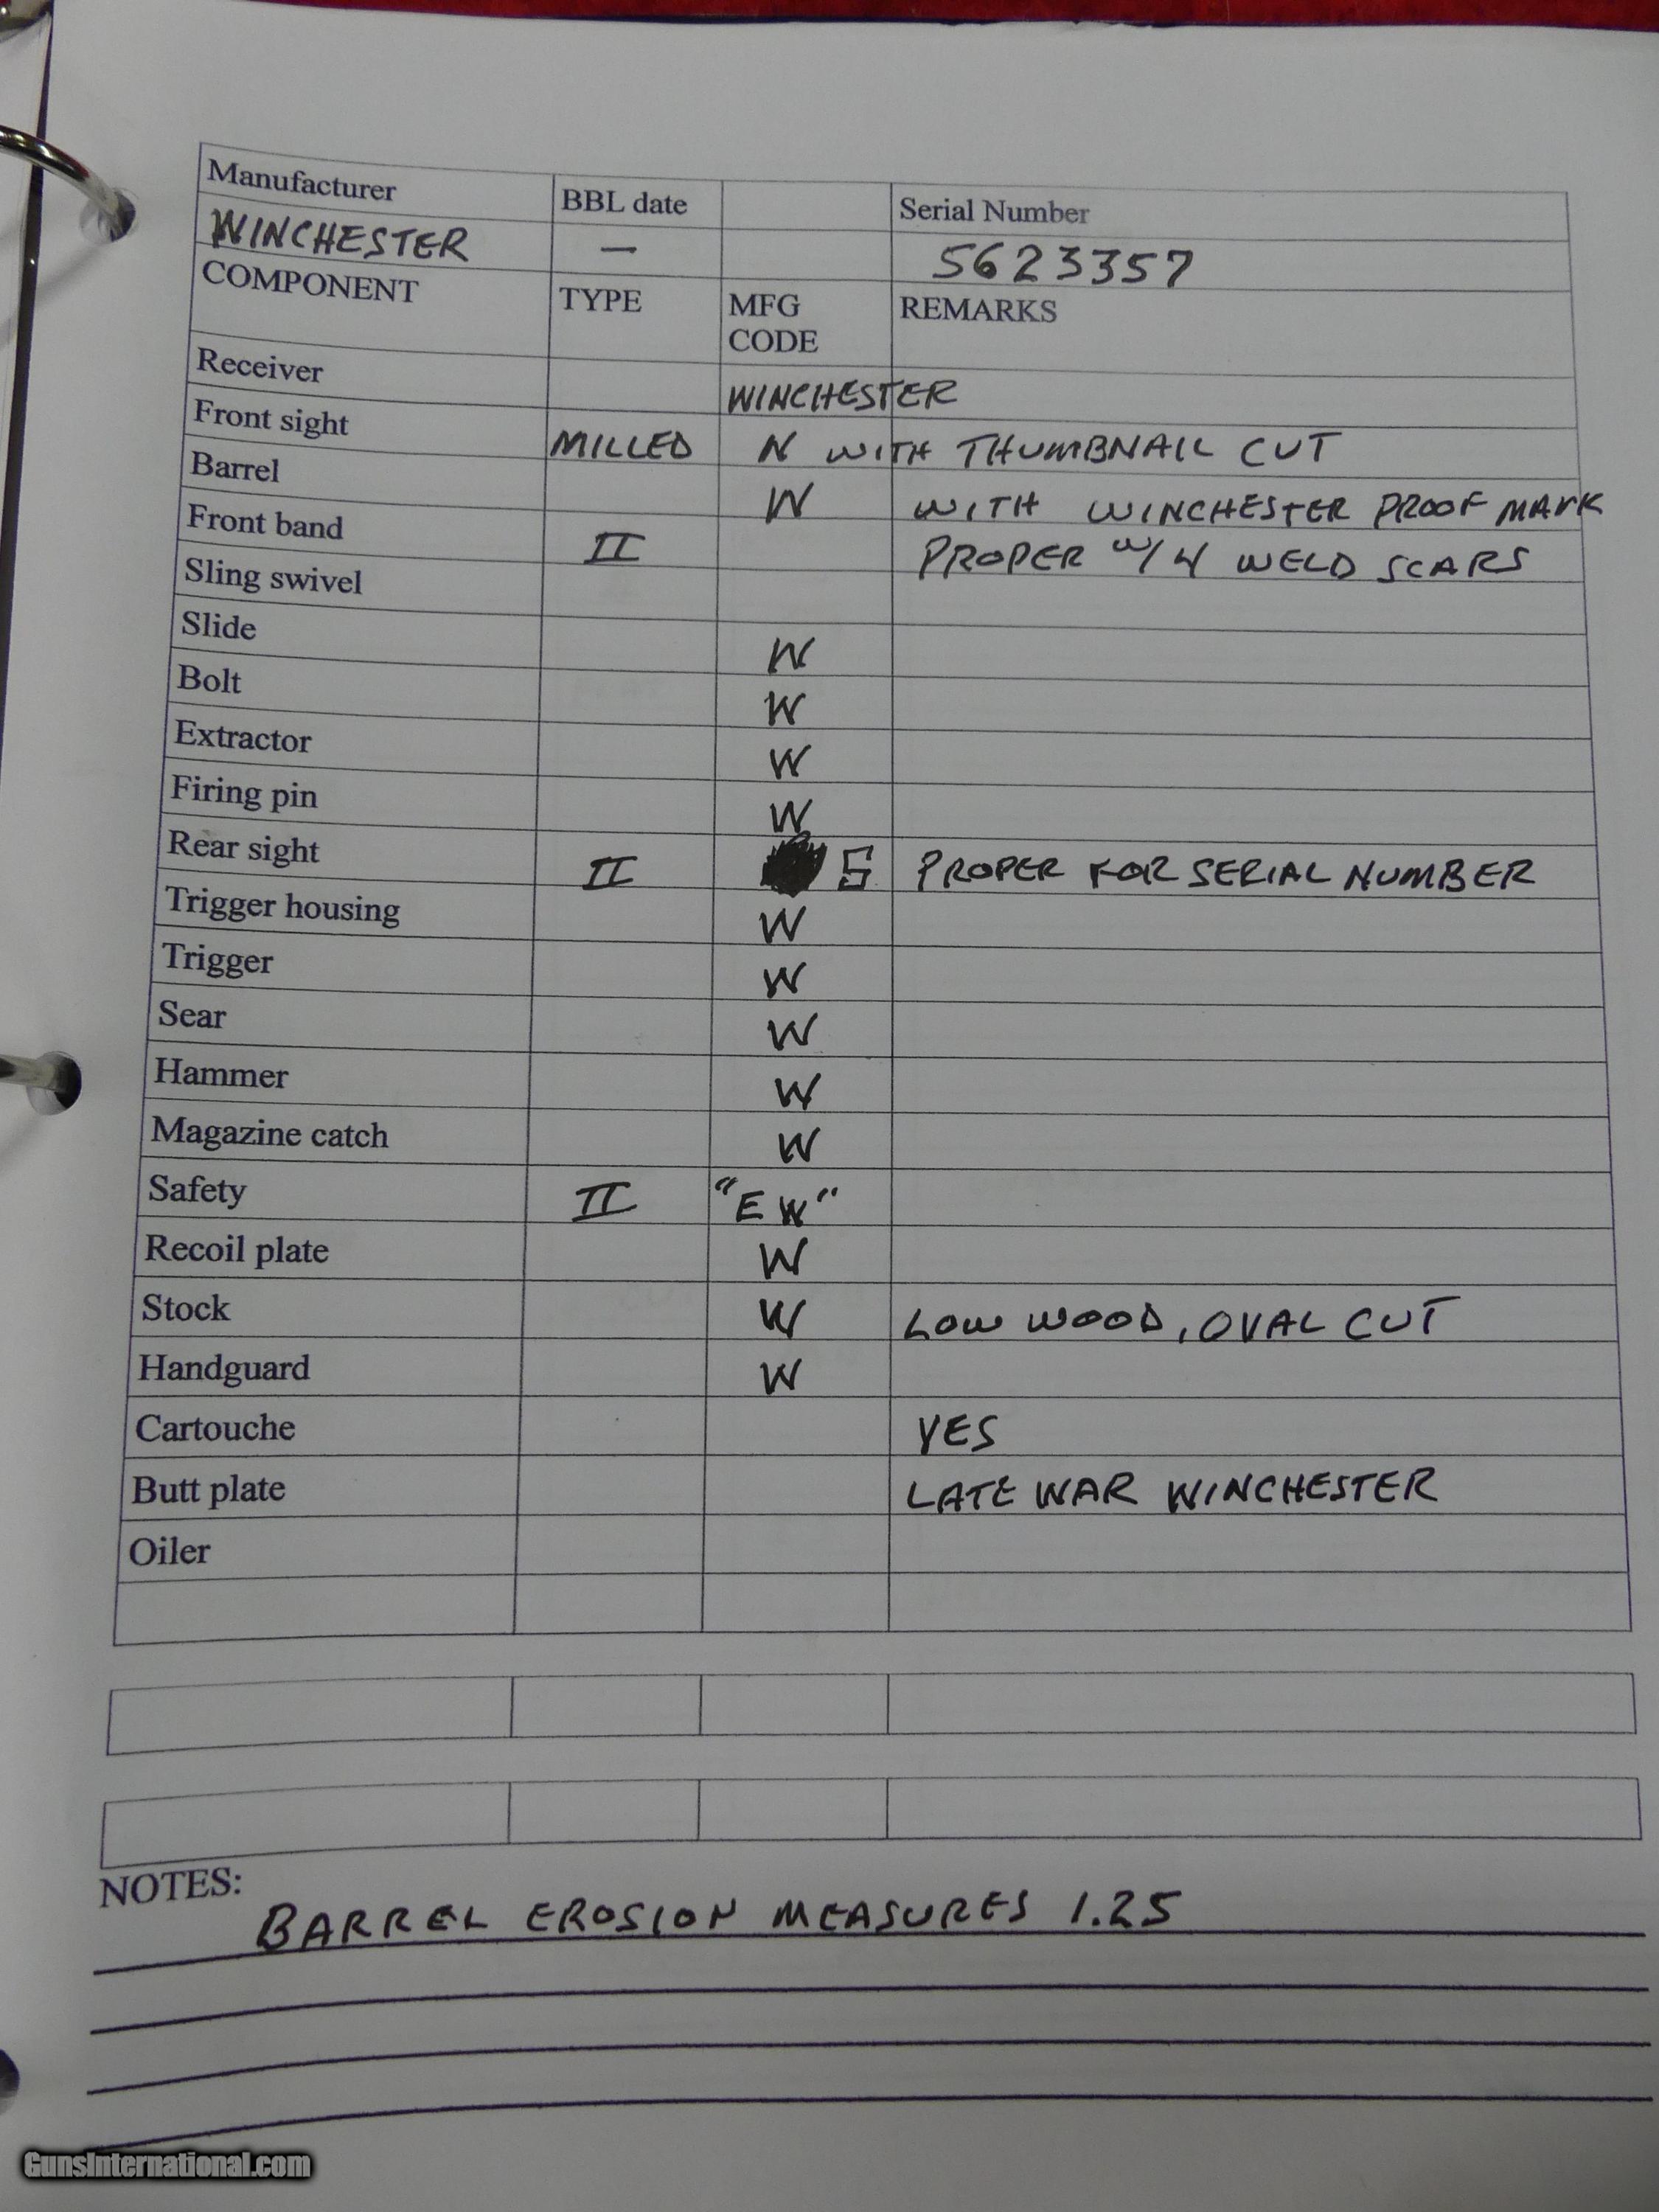 Manufacturer BBL date Serial Number
WINCHESTER — 5623357
COMPONENT TYPE MFG CODE REMARKS
Receiver WINCHESTER
Front sight MILLED N WITH THUMBNAIL CUT
Barrel W WITH WINCHESTER PROOF MARK
Front band II PROPER W/ 4 WELD SCARS
Sling swivel
Slide W
Bolt W
Extractor W
Firing pin W
Rear sight II S PROPER FOR SERIAL NUMBER
Trigger housing W
Trigger W
Sear W
Hammer W
Magazine catch W
Safety II "EW"
Recoil plate W
Stock W LOW WOOD, OVAL CUT
Handguard W
Cartouche YES
Butt plate LATE WAR WINCHESTER
Oiler
NOTES:
BARREL EROSION MEASURES 1.25
GunsInternational.com